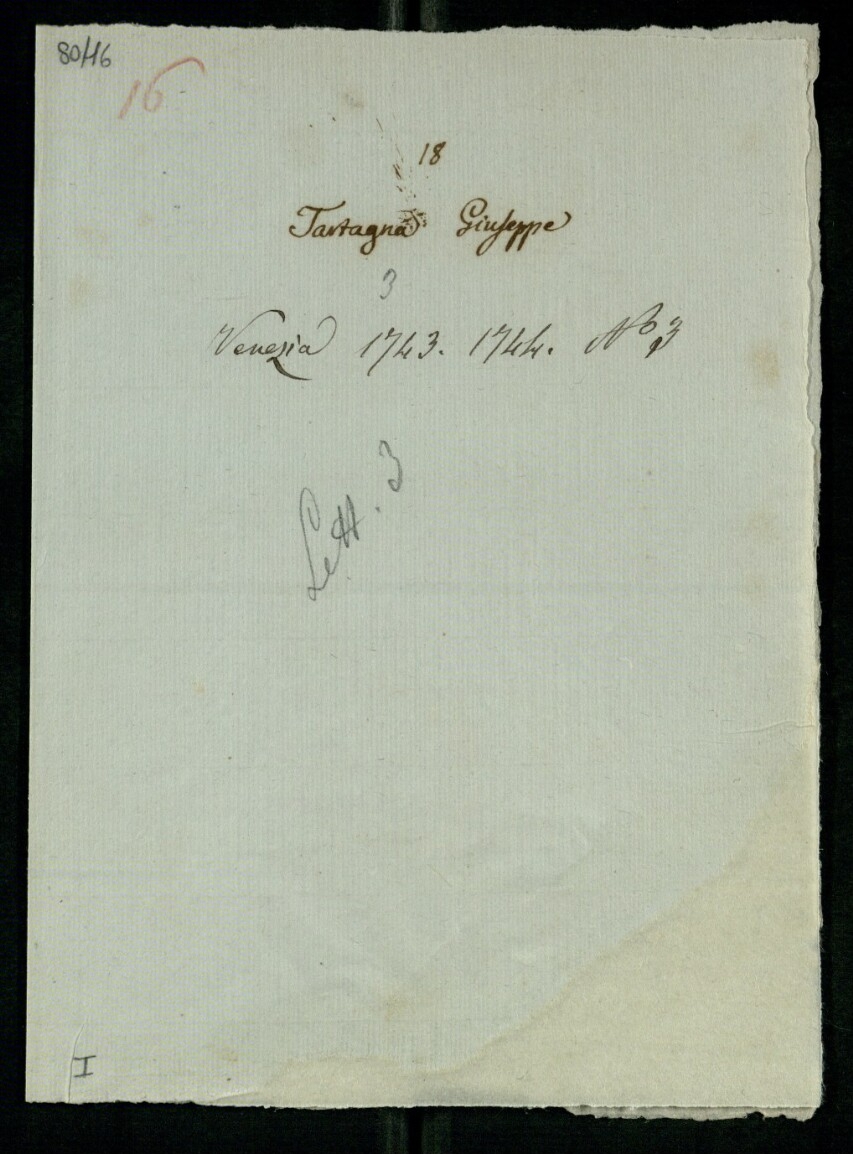 80/16
16
18
Tartagna Giuseppe
3
Venezia 1743. 1744. No 3
Lett. 3
I